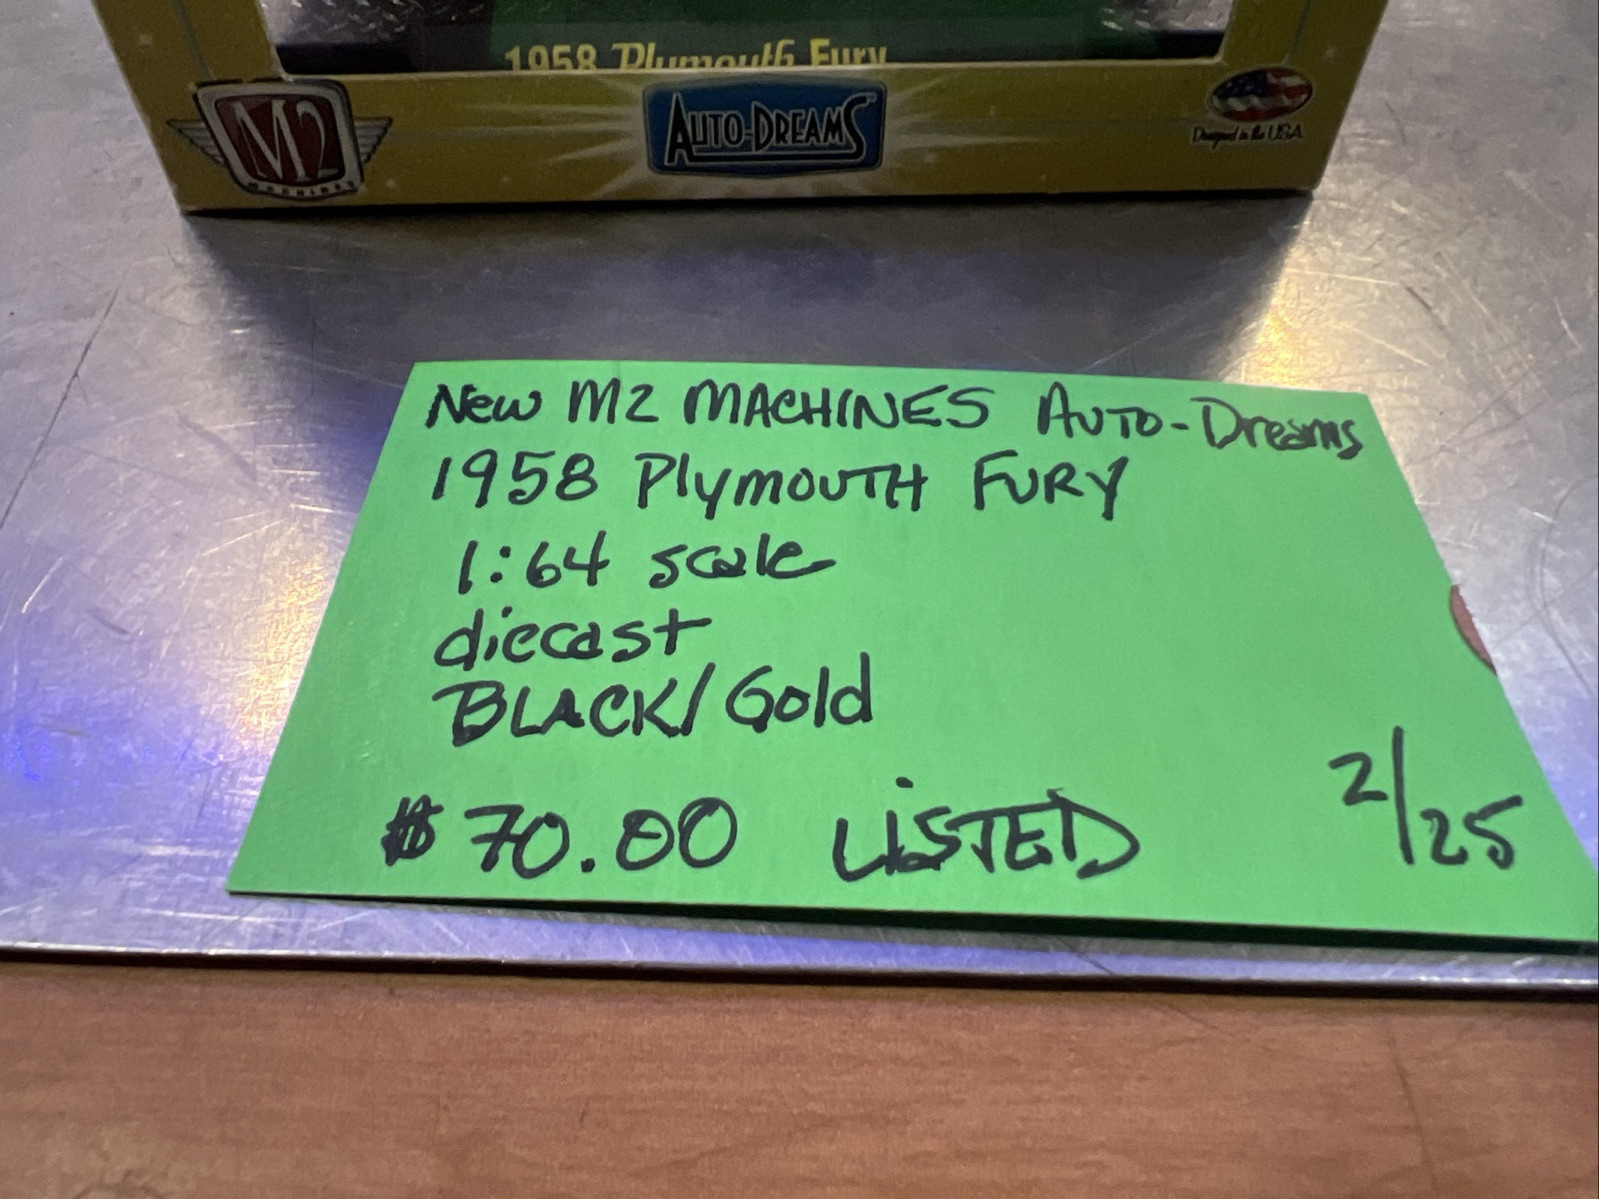 1958 Plymouth Fury
M2
MACHINES
AUTO-DREAMS
Designed in the USA
New M2 MACHINES AUTO-Dreams
1958 PlyMOUTH FURY
1:64 scale
diecast
BLACK/Gold
$70.00 LiSTED
2/25